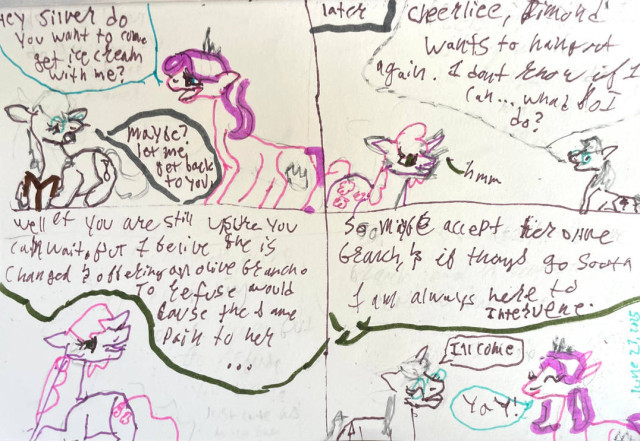 Hey Silver do
You want to come
get ice cream
with me?
maybe?
let me
get back
to you!
later
Cheerliee, Dimond
wants to hangout
again. I dont know if I
can... what do I
do?
hmm
well if you are still unsure you
can wait, but I belive she is
changed & offering an olive branch
To refuse would
cause the same
pain to her
...
So maybe accept her olive
branch, & if things go south
I am always here to
intervene.
Ill come
Yay!
June 27, 2025